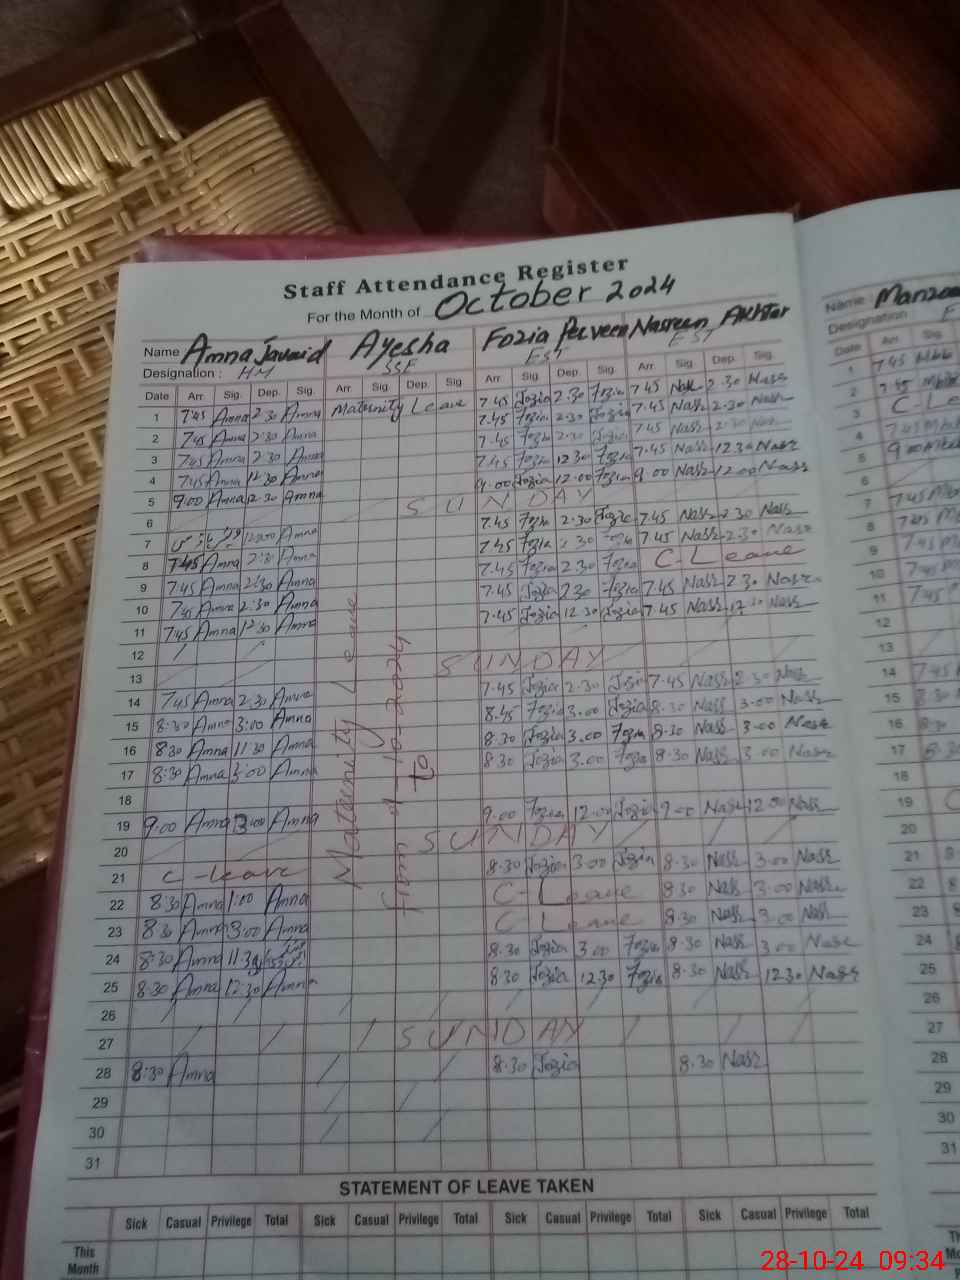 Staff Attendance Register
For the Month of October 2024
Name Amna Javaid Ayesha Fozia Perveen Nasreen Akhtar
Designation : HM SSE EST EST
Date Arr. Sig. Dep. Sig. Arr. Sig. Dep. Sig. Arr. Sig. Dep. Sig. Arr. Sig. Dep. Sig.
1 7:45 Amna 2:30 Amna Maternity Leave 7.45 Fozia 2.30 Fozia 7.45 Nasr 2.30 Nasr
2 7:45 Amna 2:30 Amna 7.45 Fozia 2.30 Fozia 7.45 Nasr 2.30 Nasr
3 7:45 Amna 2:30 Amna 7.45 Fozia 2.30 Fozia 7.45 Nasr 2.30 Nasr
4 7:45 Amna 12:30 Amna 7.45 Fozia 12.30 Fozia 7.45 Nasr 12.30 Nasr
5 9:00 Amna 12:30 Amna 9.00 Fozia 12.00 Fozia 9.00 Nasr 12.00 Nasr
6 SUNDAY
7 Amna 7.45 Fozia 2.30 Fozia 7.45 Nasr 2.30 Nasr
8 7:45 Amna 2:30 Amna 7.45 Fozia 2.30 Fozia 7.45 Nasr 2.30 Nasr
9 7:45 Amna 2:30 Amna 7.45 Fozia 2.30 Fozia C-Leave
10 7:45 Amna 2:30 Amna 7.45 Fozia 2.30 Fozia 7.45 Nasr 2.30 Nasr
11 7:45 Amna 12:30 Amna 7.45 Fozia 12.30 Fozia 7.45 Nasr 12.30 Nasr
12
13 SUNDAY
14 7:45 Amna 2:30 Amna 7.45 Fozia 2.30 Fozia 7.45 Nasr 2.30 Nasr
15 8:30 Amna 3:00 Amna 8.45 Fozia 3.00 Fozia 8.30 Nasr 3.00 Nasr
16 8:30 Amna 11:30 Amna 8.30 Fozia 3.00 Fozia 8.30 Nasr 3.00 Nasr
17 8:30 Amna 3:00 Amna 8.30 Fozia 3.00 Fozia 8.30 Nasr 3.00 Nasr
18
19 9:00 Amna Amna 9.00 Fozia 12.00 Fozia 9.00 Nasr 12.00 Nasr
20 SUNDAY
21 C-leave 8.30 Fozia 3.00 Fozia 8.30 Nasr 3.00 Nasr
22 8:30 Amna 1:00 Amna C-Leave 8.30 Nasr 3.00 Nasr
23 8:30 Amna 3:00 Amna C Leave 8.30 Nasr 3.00 Nasr
24 8:30 Amna 11:30 8.30 Fozia 3.00 Fozia 8.30 Nasr 3.00 Nasr
25 8:30 Amna 12:30 Amna 8.30 Fozia 12.30 Fozia 8.30 Nasr 12.30 Nasr
26
27 SUNDAY
28 8:30 Amna 8.30 Fozia 8.30 Nasr
29
30
31
Maternity Leave
from 1-10-2024
to
STATEMENT OF LEAVE TAKEN
Sick Casual Privilege Total Sick Casual Privilege Total Sick Casual Privilege Total Sick Casual Privilege Total
This
Month
Name
Designation
Date Arr. Sig.
1 7:45
2 7:45
3 C-Le
4
5 9.00
6
7 7:45
8 7:45
9 7:45
10 7:45
11 7:45
12
13
14 7:45
15 8:30
16 8:30
17 8:30
18
19
20
21
22
23
24
25
26
27
28
29
30
31
28-10-24 09:34